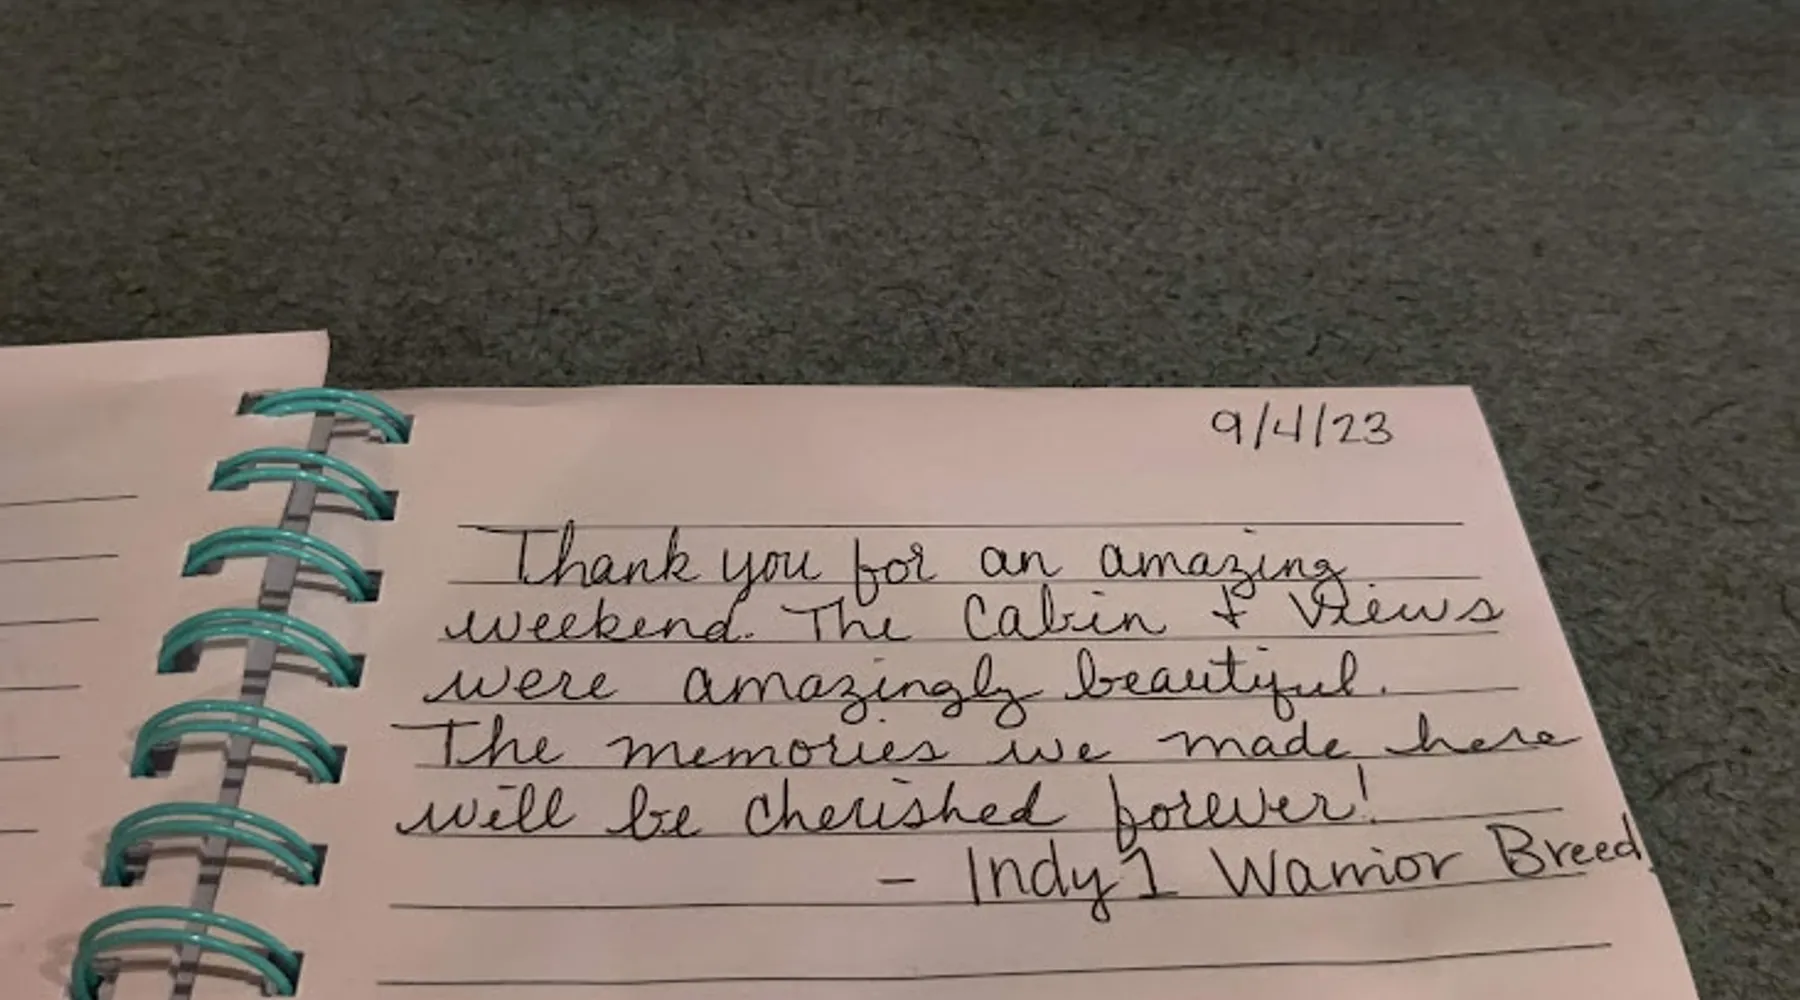 9/4/23
Thank you for an amazing
weekend. The Cabin + Views
were amazingly beautiful.
The memories we made here
will be cherished forever!
- Indy 1 Warrior Breed